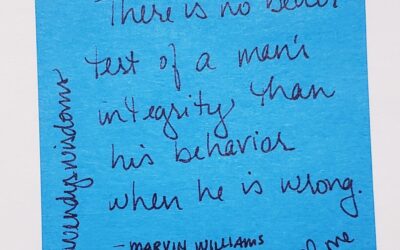 There is no better
test of a man's
integrity than
his behavior
when he is wrong.
- MARVIN WILLIAMS
wendyswisdoms